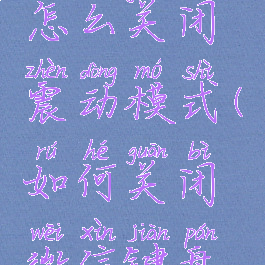 怎么关闭
zhèn dòng mó shì
震动模式(
rú hé guān bì
如何关闭
wēi xìn jiàn pán
微信键盘